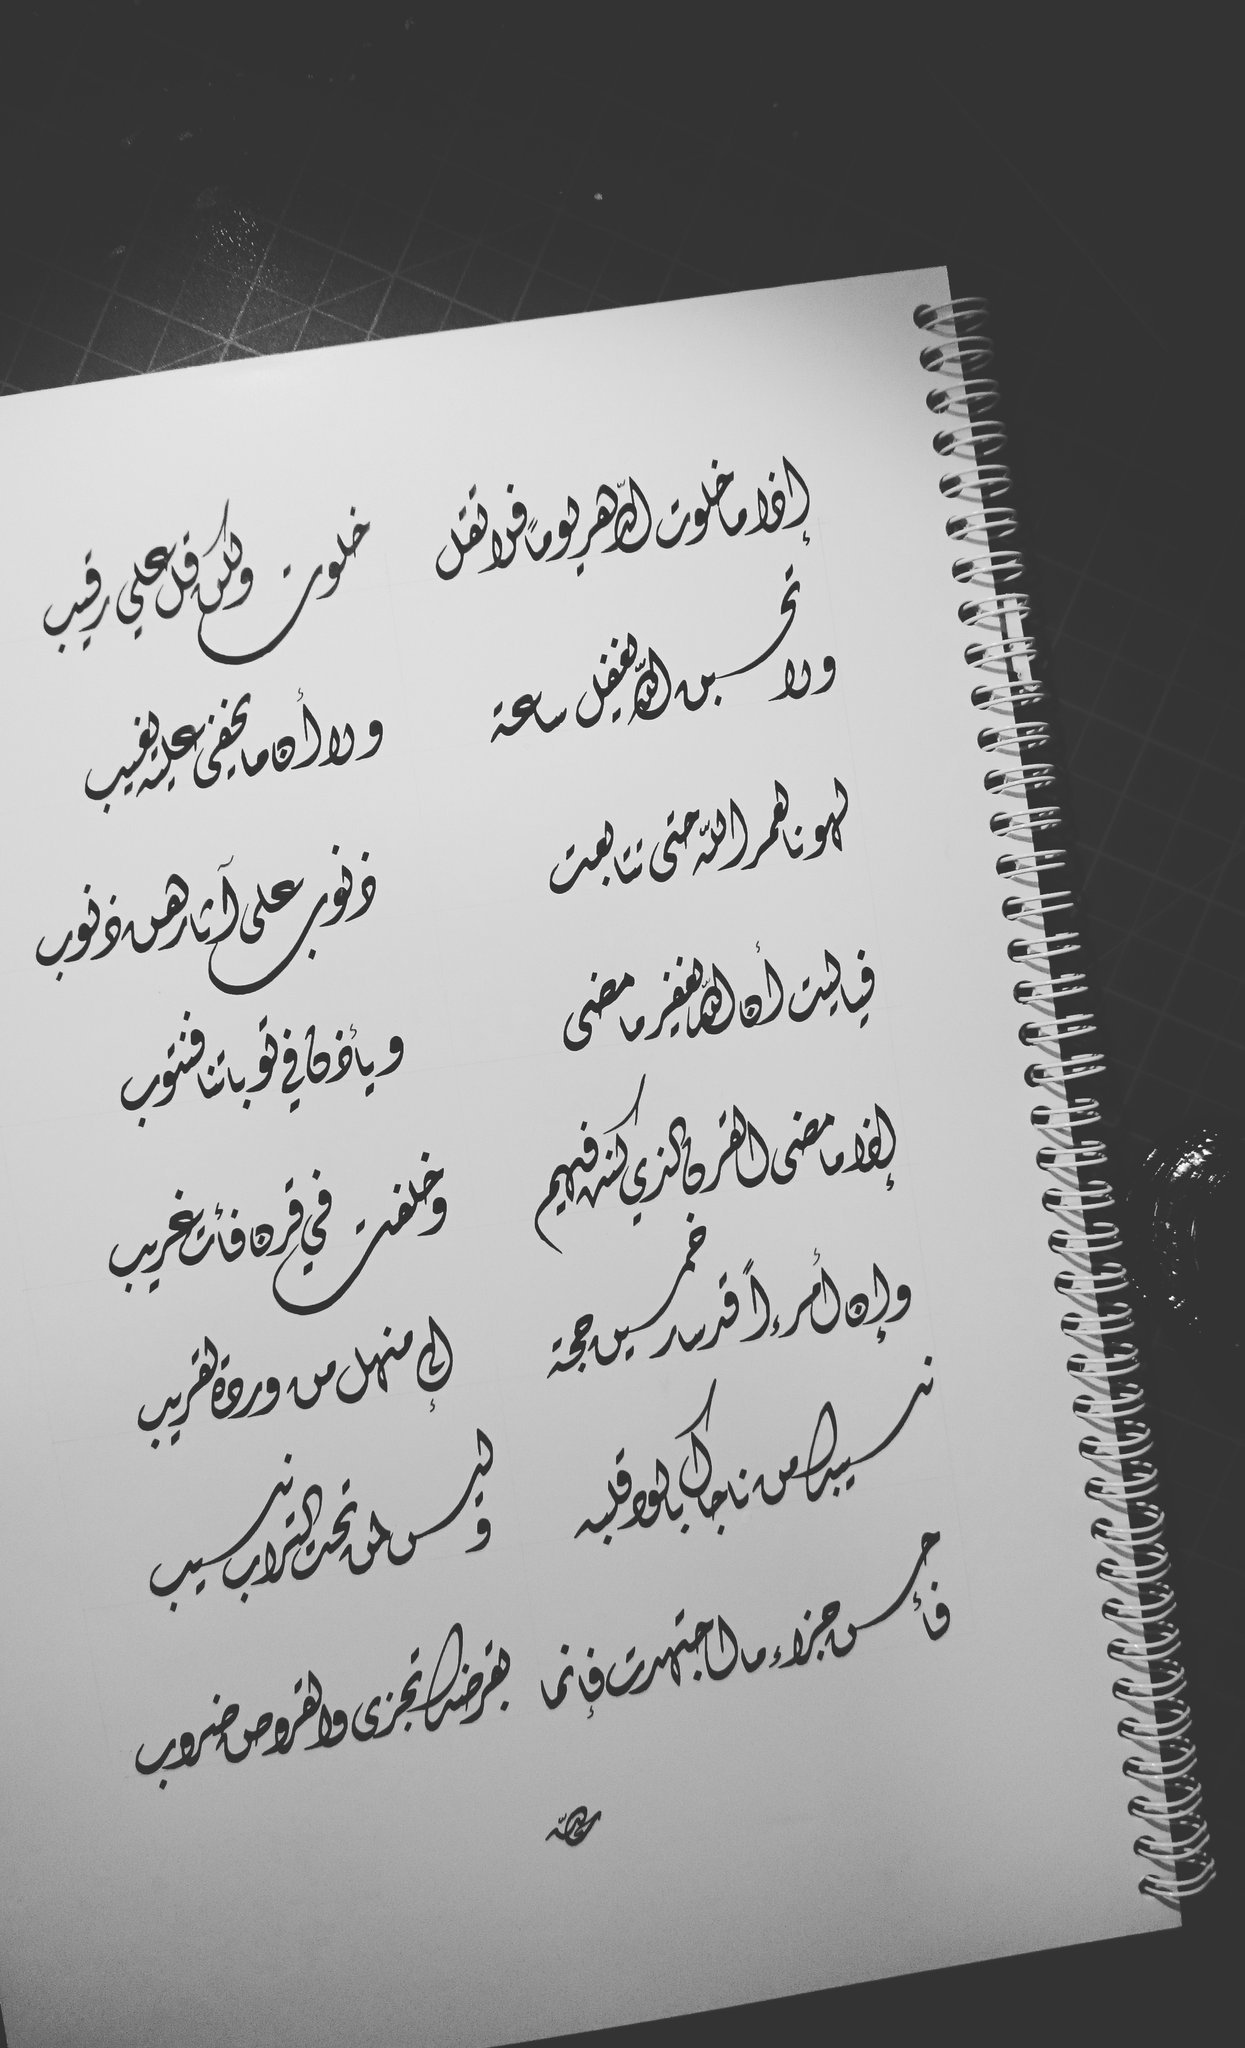 إذا ما خلوت الدّهر يوماً فلا تقل خلوت ولكن قل علي رقيب
ولا تحسبن الله يغفل ساعة ولا أن ما يخفى عليه يغيب
لهونا لعمر الله حتى تتابعت ذنوب على آثارهن ذنوب
فيا ليت أن الله يغفر ما مضى ويأذن في توباتنا فنتوب
إذا ما مضى القرن الذي كنت فيهم وخلفت في قرن فأنت غريب
وإن أمرءاً قد سار خمسين حجة إلى منهل من ورده لقريب
نسيبك من ناجاك بالود قلبه وليس لمن تحت التراب نسيب
فأحسن جزاء ما اجتهدت فإنما بقرضك تجزى والقروض ضروب